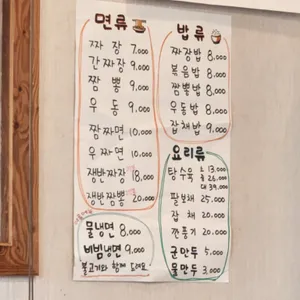 면류
짜장 7,000
간짜장 9,000
짬뽕 9,000
우동 9,000
짬짜면 10,000
우짜면 10,000
쟁반짜장 18,000
쟁반짬뽕 20,000
물냉면 8,000
비빔냉면 9,000
불고기와 함께 드려요
밥류
짜장밥 8,000
볶음밥 8,000
짬뽕밥 8,000
우동밥 8,000
잡채밥 9,000
요리류
탕수육 소 13,000
중 26,000
대 39,000
팔보채 25,000
잡채 20,000
깐풍기 20,000
군만두 5,000
물만두 3,000